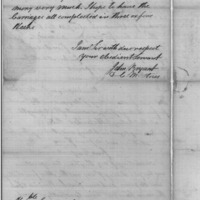 away very much. I hope to have the
Carriages all completed in three or four
Weeks.
I am Sir with due respect
Your obedient Servant
John